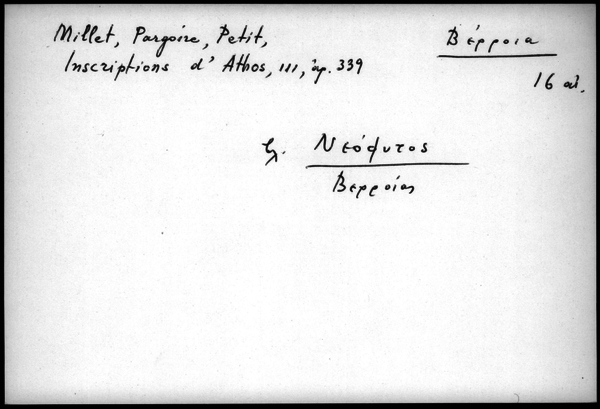 Millet, Pargoire, Petit,
Inscriptions d' Athos, III, ἀρ. 339
Βέρροια
16 αἰ.
Νεόφυτος
Βερροίας